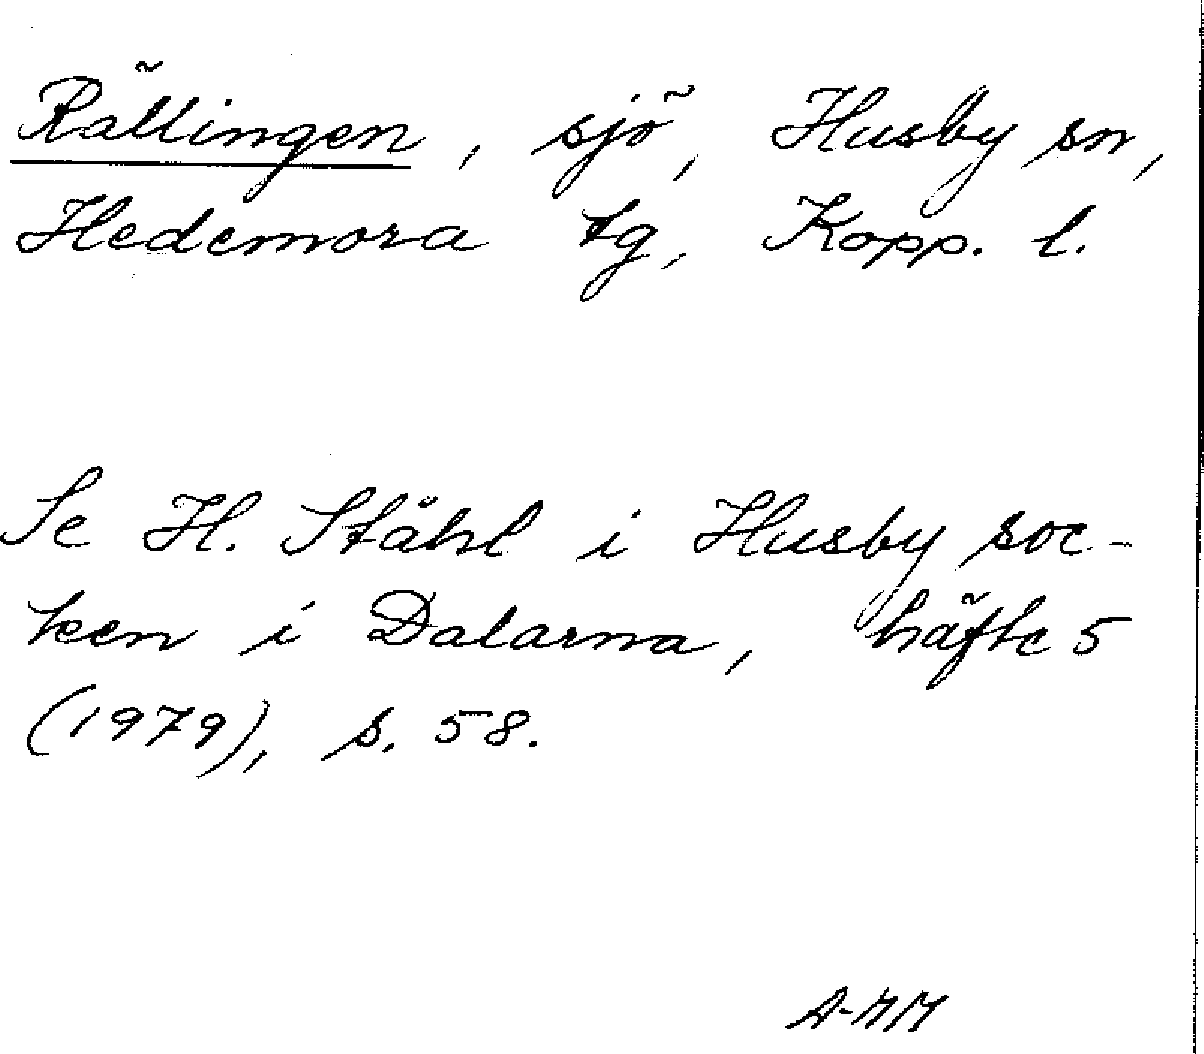 Rällingen, sjö, Husby sn,
Hedemora tg, Kopp. l.
Se H. Ståhl i Husby soc-
ken i Dalarna, häfte 5
(1979), s. 58.